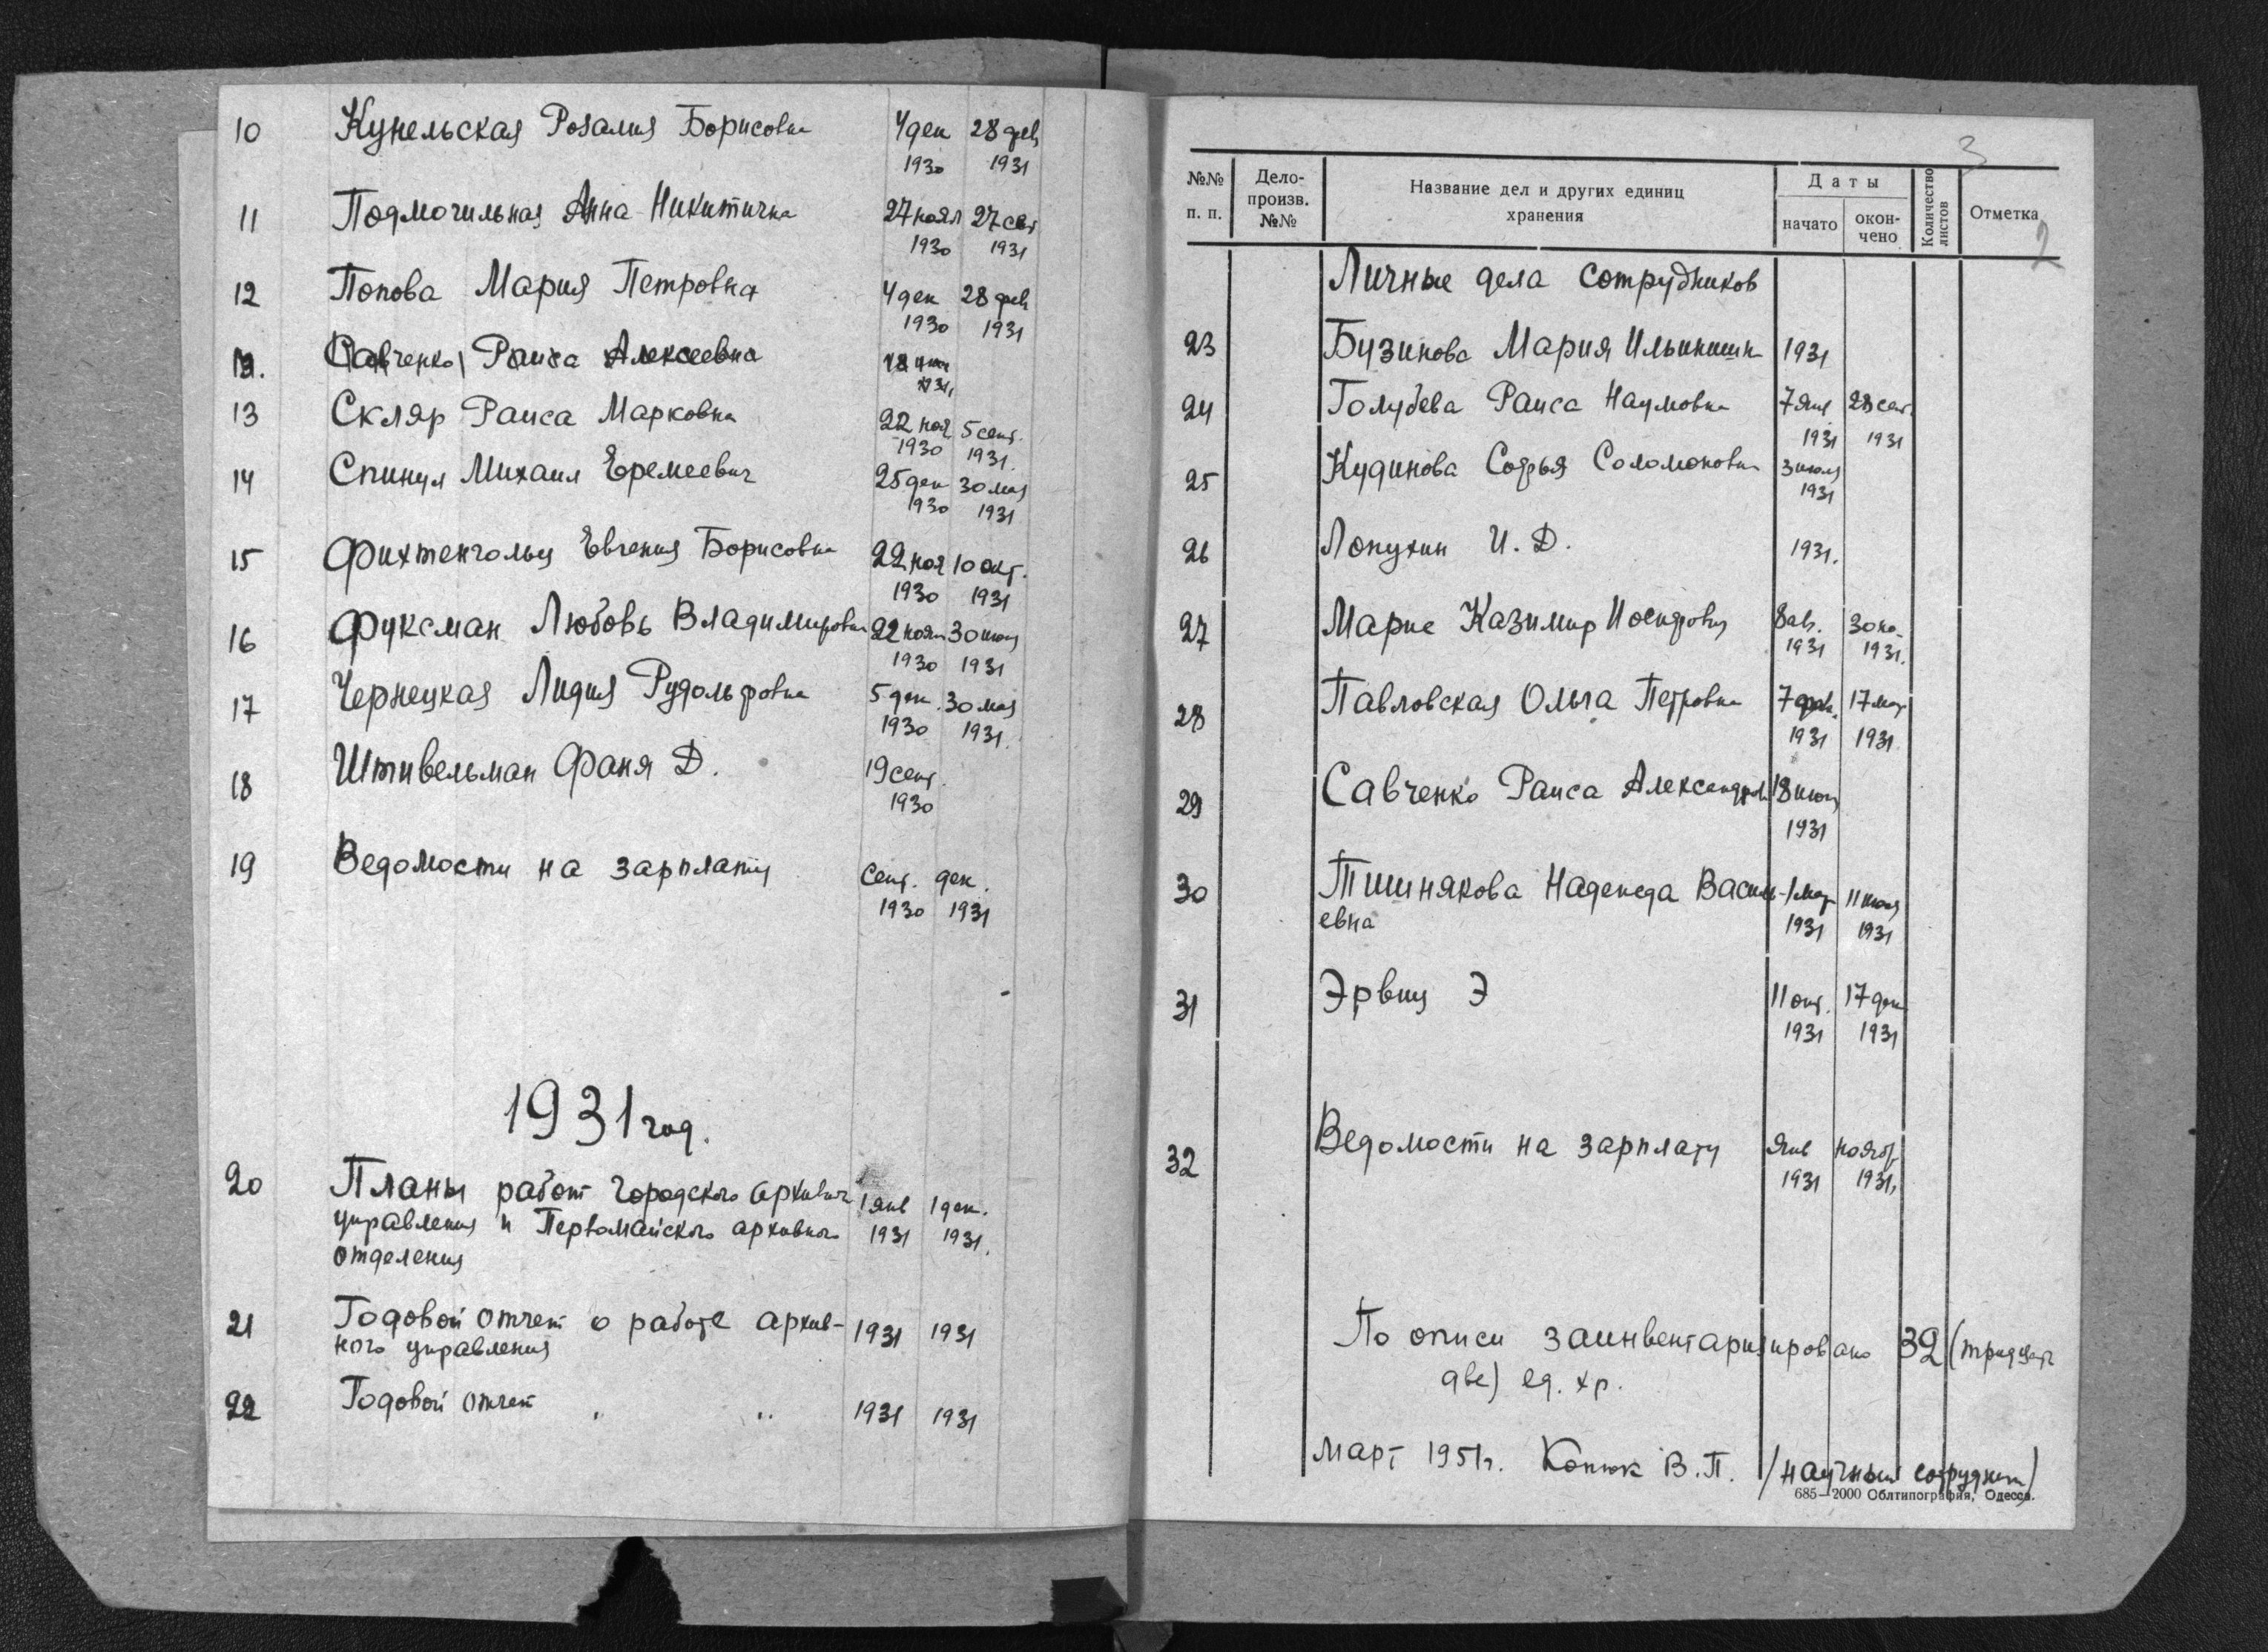 10 Кунельская Розалия Борисовна 4 дек 28 фев
1930 1931
11 Подмогильная Анна Никитична 27 нояб 27 сент
1930 1931
12 Попова Мария Петровна 4 дек 28 фев
1930 1931
Савченко Раиса Алексеевна
13 Скляр Раиса Марковна 22 ноя 5 сент.
1930 1931.
14 Спинул Михаил Еремеевич 25 дек 30 мая
1930 1931
15 Фихтенгольц Евгения Борисовна 22 ноя 10 окт.
1930 1931
16 Фуксман Любовь Владимировна 22 нояб 30 июня
1930 1931
17 Чернецкая Лидия Рудольфовна 5 дек. 30 мая
1930 1931.
18 Штивельман Фаня Д. 19 сент.
1930
19 Ведомости на зарплату Сент. дек.
1930 1931
1931 год.
20 Планы работ Городского архивн 1 янв 1 дек.
управления и Первомайского архивного 1931 1931.
отделения
21 Годовой отчет о работе архив- 1931 1931
ного управления
22 Годовой отчет " " 1931 1931
3
№№ п. п. Дело-произв. №№ Название дел и других единиц хранения Даты начато окон-чено Количество листов Отметка
2
Личные дела сотрудников
23 Бузинова Мария Ильинишн 1931
24 Голубева Раиса Наумовна 7 янв 28 сент.
1931 1931
25 Кудинова Софья Соломоновна 3 июля
1931
26 Лопухин И. Д. 1931.
27 Марие Казимир Иосифович 8 ав. 30 но.
1931 1931.
28 Павловская Ольга Петровна 7 фев. 17 мар
1931 1931
29 Савченко Раиса Александров 18 июня
1931
30 Тишнякова Надежда Василь- 1 мар 11 июля
евна 1931 1931
31 Эрвиц Э 11 окт. 17 дек
1931 1931
32 Ведомости на зарплату Янв нояб.
1931 1931.
По описи заинвентаризировано 32 (тридцать
две) ед. хр.
Март 1951г. Конюк В. П. /научный сотрудник/
685—2000 Облтипография, Одесса.